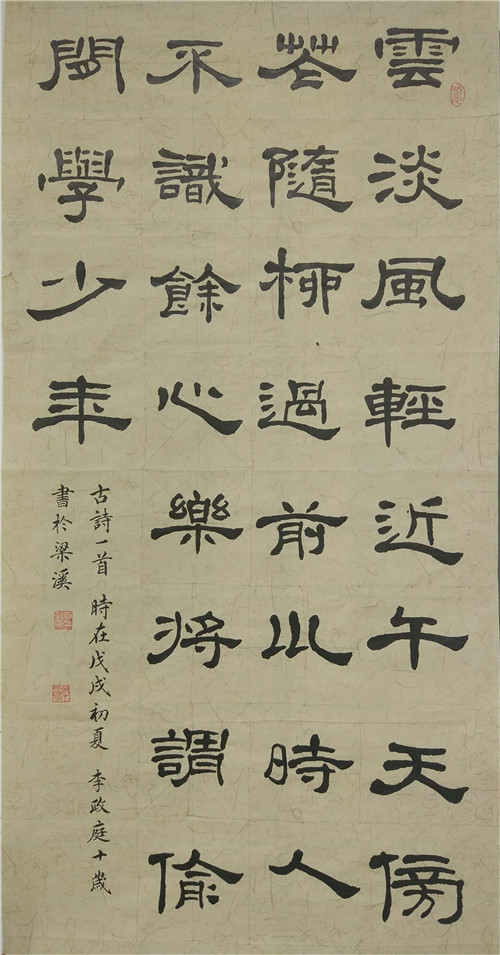 雲淡風輕近午天傍
花隨柳過前川時人
不識餘心樂將調偷
閒學少年
古詩一首 時在戊戌初夏 李政庭十歲
書於梁溪